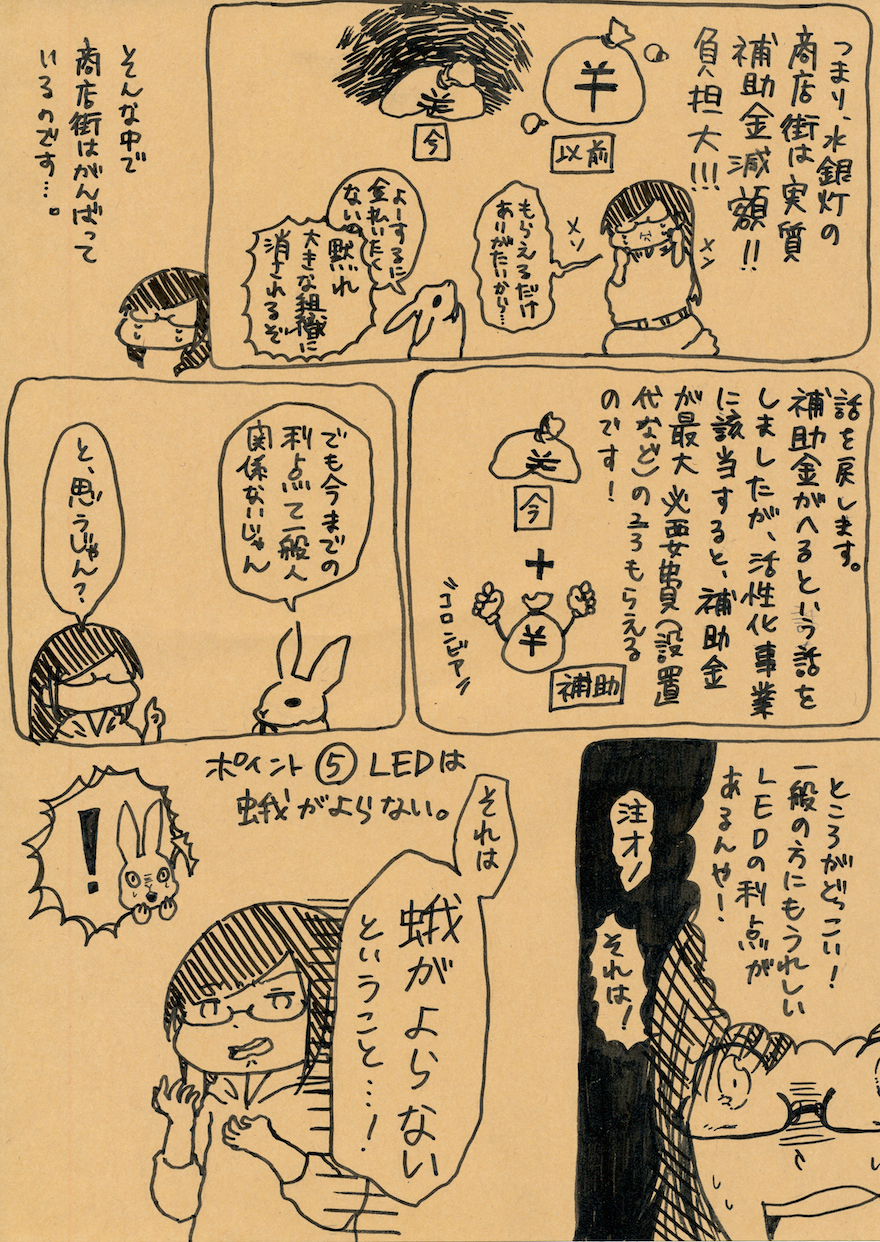 つまり、水銀灯の
商店街は実質
補助金減額!!
負担大!!!
以前
今
もらえるだけ
ありがたいから…
メソ
メソ
よーするに
金払いたく
ないの
黙れ
大きな組織に
消されるぞ
そんな中で
商店街はがんばって
いるのです…。
話を戻します。
補助金がへるという話を
しましたが、活性化事業
に該当すると、補助金
が最大 必要費(設置
代など)の2/3もらえる
のです!
今
+
補助
"コロンビア"
でも今までの
利点て一般人
関係ないじゃん
と、思うじゃん?
ところがどっこい!
一般の方にもうれしい
LEDの利点が
あるんや!
注オ!
それは!
ポイント⑤ LEDは
蛾がよらない。
それは
蛾がよらない
ということ…!
!